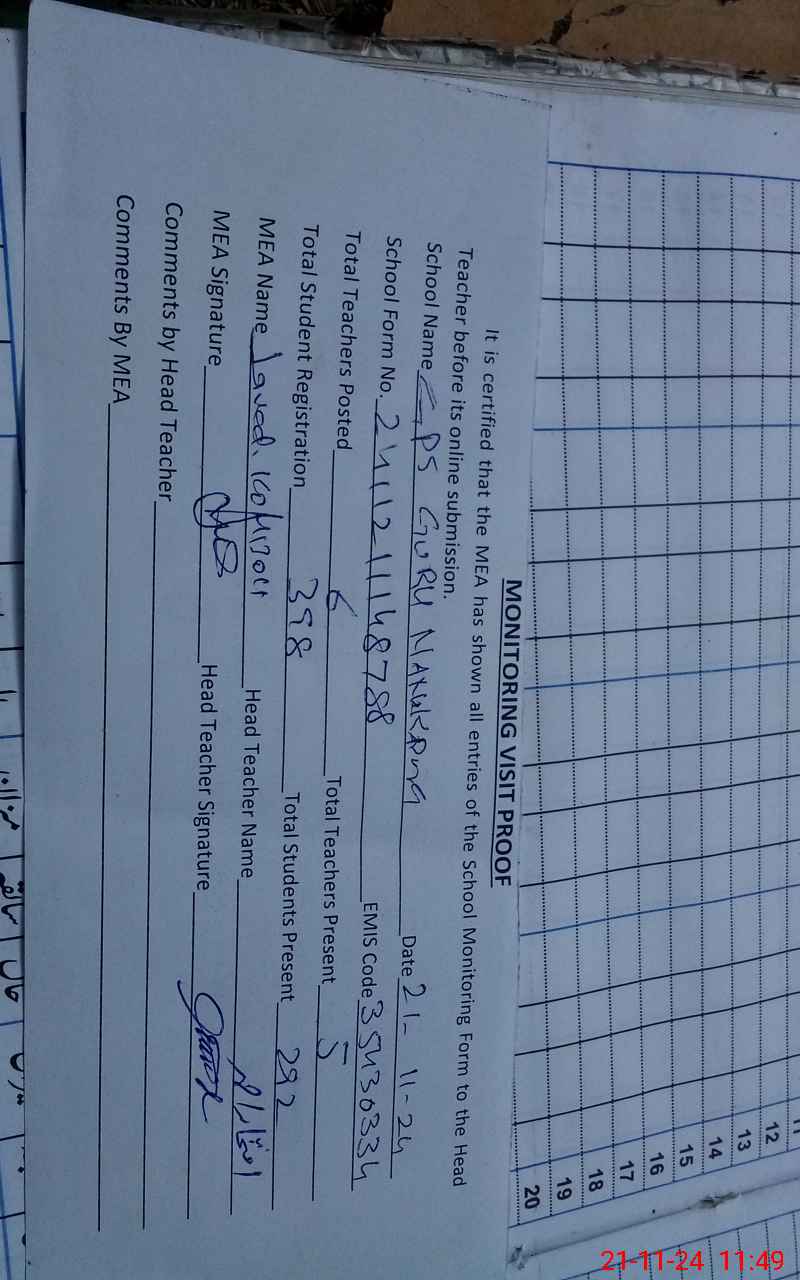 MONITORING VISIT PROOF
It is certified that the MEA has shown all entries of the School Monitoring Form to the Head
Teacher before its online submission.
School Name GPS GURU NANUKPURA Date 21-11-24
School Form No. 241121148788 EMIS Code 35430334
Total Teachers Posted 6 Total Teachers Present 5
Total Student Registration 398 Total Students Present 292
MEA Name Javed Head Teacher Name
MEA Signature Head Teacher Signature
Comments by Head Teacher
Comments By MEA
11
12
13
14
15
16
17
18
19
20
21-11-24 11:49